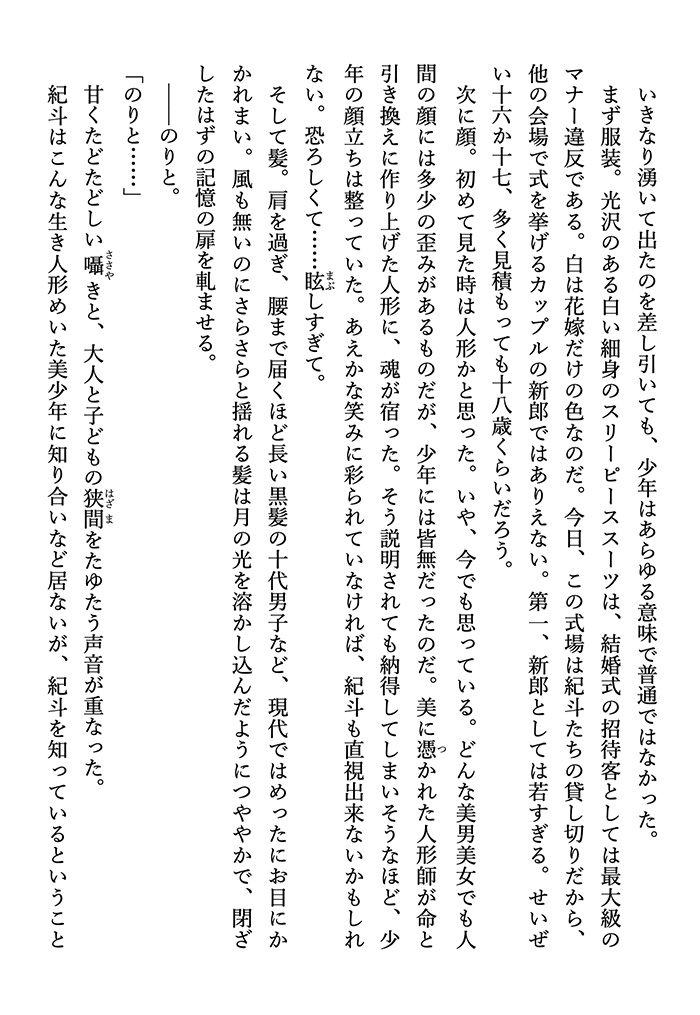 いきなり湧いて出たのを差し引いても、少年はあらゆる意味で普通ではなかった。
まず服装。光沢のある白い細身のスリーピーススーツは、結婚式の招待客としては最大級の
マナー違反である。白は花嫁だけの色なのだ。今日、この式場は紀斗たちの貸し切りだから、
他の会場で式を挙げるカップルの新郎ではありえない。第一、新郎としては若すぎる。せいぜ
い十六か十七、多く見積もっても十八歳くらいだろう。
次に顔。初めて見た時は人形かと思った。いや、今でも思っている。どんな美男美女でも人
間の顔には多少の歪みがあるものだが、少年には皆無だったのだ。美に憑かれた人形師が命と
引き換えに作り上げた人形に、魂が宿った。そう説明されても納得してしまいそうなほど、少
年の顔立ちは整っていた。あえかな笑みに彩られていなければ、紀斗も直視出来ないかもしれ
ない。恐ろしくて……眩しすぎて。
そして髪。肩を過ぎ、腰まで届くほど長い黒髪の十代男子など、現代ではめったにお目にか
かれまい。風も無いのにさらさらと揺れる髪は月の光を溶かし込んだようにつややかで、閉ざ
したはずの記憶の扉を軋ませる。
――のりと。
「のりと……」
甘くたどたどしい囁きと、大人と子どもの狭間をたゆたう声音が重なった。
紀斗はこんな生き人形めいた美少年に知り合いなど居ないが、紀斗を知っているということ